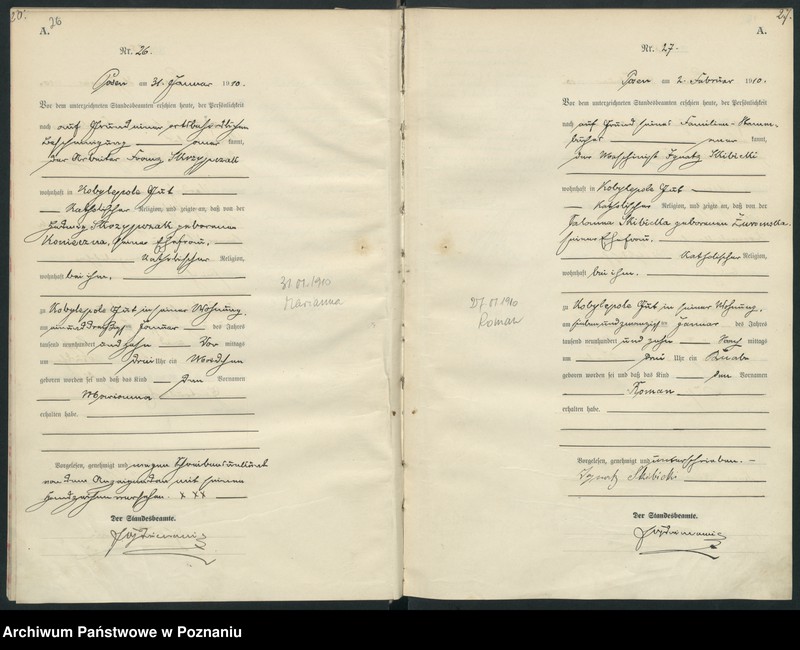 26
A.
Nr. 26.
Posen am 31. Januar 1910.
Vor dem unterzeichneten Standesbeamten erschien heute, der Persönlichkeit
nach auf Grund einer ortsbehördlichen
Bescheinigung aner kannt,
der Arbeiter Franz Skrzypczak
wohnhaft in Kobylepole Gut
katholischer Religion, und zeigte an, daß von der
Hedwig Skrzypczak geborenen
Konieczna, seiner Ehefrau,
katholischer Religion,
wohnhaft bei ihm,
zu Kobylepole Gut in seiner Wohnung,
am einunddreißigsten Januar des Jahres
tausend neunhundert und zehn Vor mittags
um drei Uhr ein Mädchen
geboren worden sei und daß das Kind den Vornamen
Marianna
erhalten habe.
Vorgelesen, genehmigt und wegen Schreibensunkunde
von dem Anzeigenden mit seinem
Handzeichen versehen. x xx
Der Standesbeamte.
31.01.1910
Marianna
27.
A.
Nr. 27.
Posen am 2. Februar 1910.
Vor dem unterzeichneten Standesbeamten erschien heute, der Persönlichkeit
nach auf Grund seines Familien-Stamm-
buches aner kannt,
der Maschinist Ignatz Skibicki
wohnhaft in Kobylepole Gut
katholischer Religion, und zeigte an, daß von der
Skibicka geborenen
seiner Ehefrau,
katholischer Religion,
wohnhaft bei ihm,
zu Kobylepole Gut in seiner Wohnung,
am siebenundzwanzigsten Januar des Jahres
tausend neunhundert und zehn Nach mittags
um drei Uhr ein Knabe
geboren worden sei und daß das Kind den Vornamen
Roman
erhalten habe.
Vorgelesen, genehmigt und unterschrieben. –
Ignatz Skibicki
Der Standesbeamte.
27.01.1910
Roman
Archiwum Państwowe w Poznaniu